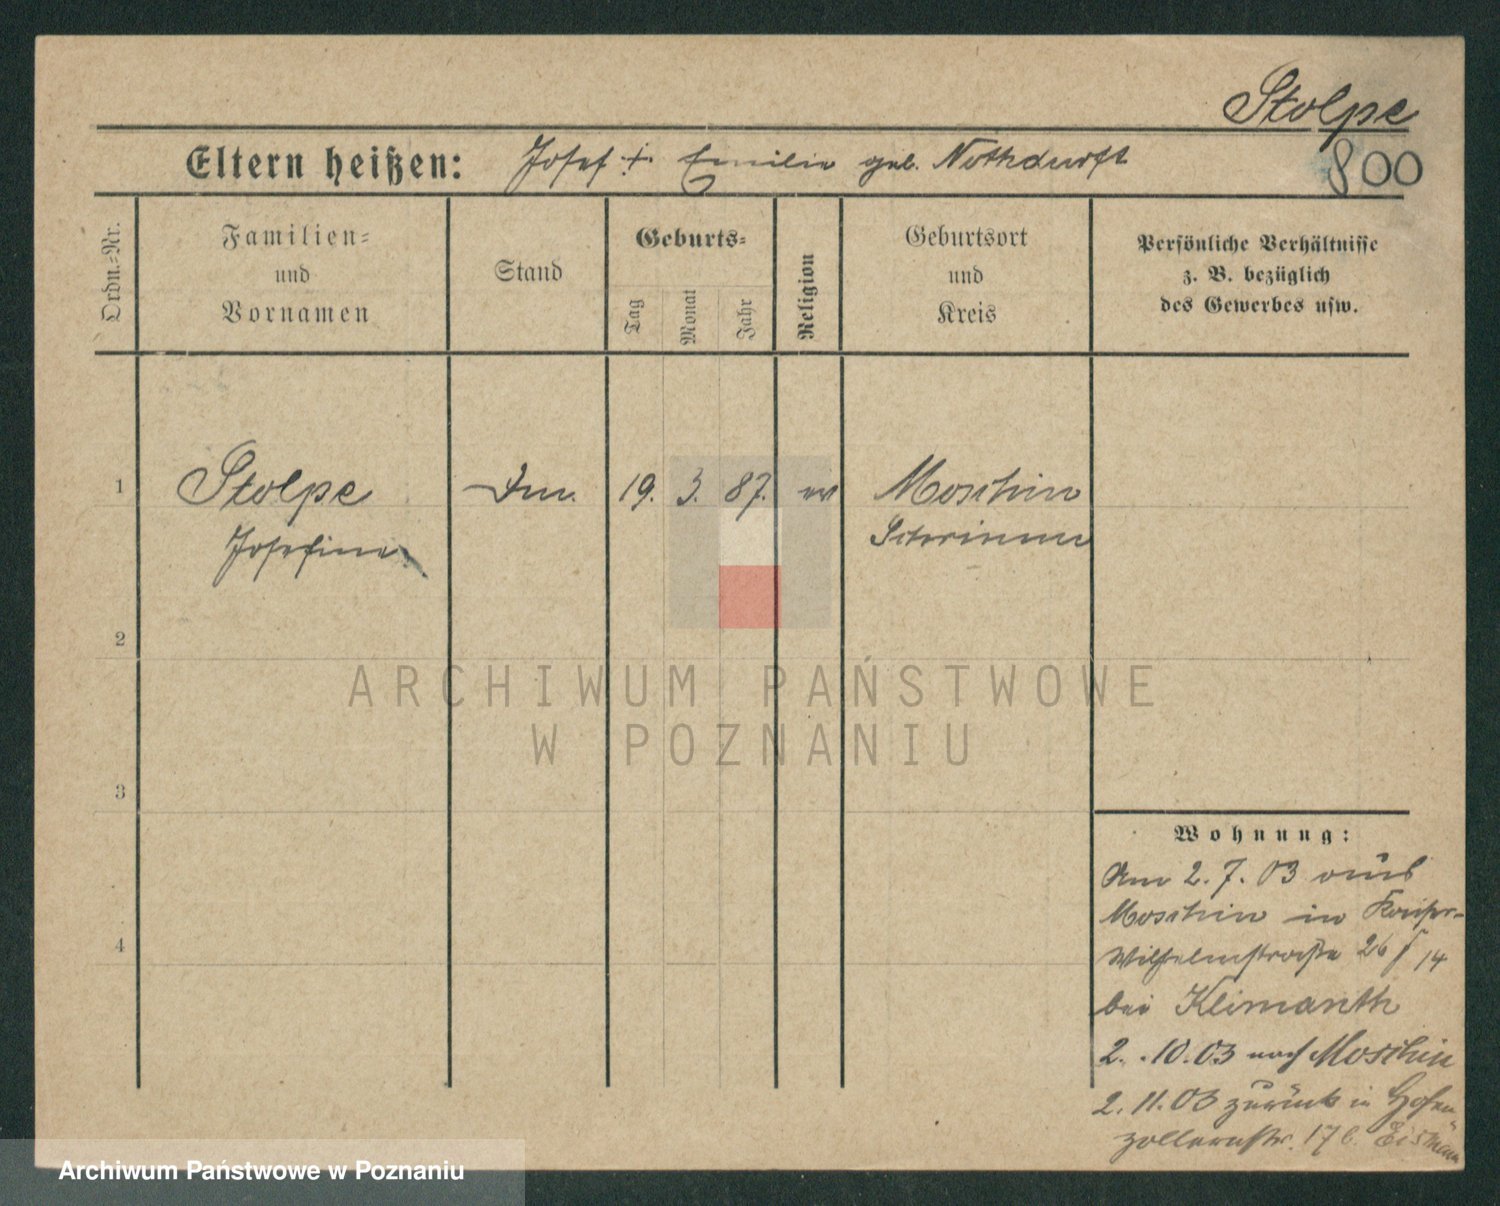 Stolpe
Eltern heißen: Josef + Emilie geb. Nothdurft
800
Ordn.-Nr.
Familien-
und
Vornamen
Stand
Geburts-
Tag
Monat
Jahr
Religion
Geburtsort
und
Kreis
Persönliche Verhältnisse
z. B. bezüglich
des Gewerbes usw.
1 Stolpe 19. 3. 87. ev Moschin
Josefine Schrimm
2
ARCHIWUM PAŃSTWOWE
W POZNANIU
3
Wohnung:
Am 2. 7. 03 aus
4 Moschin in Kaiser-
Wilhelmstraße 26 14
bei Klimanth
2. 10. 03 nach Moschin
2. 11. 03 zurück in Hohen
zollernstr. 17 b. Eismann
Archiwum Państwowe w Poznaniu